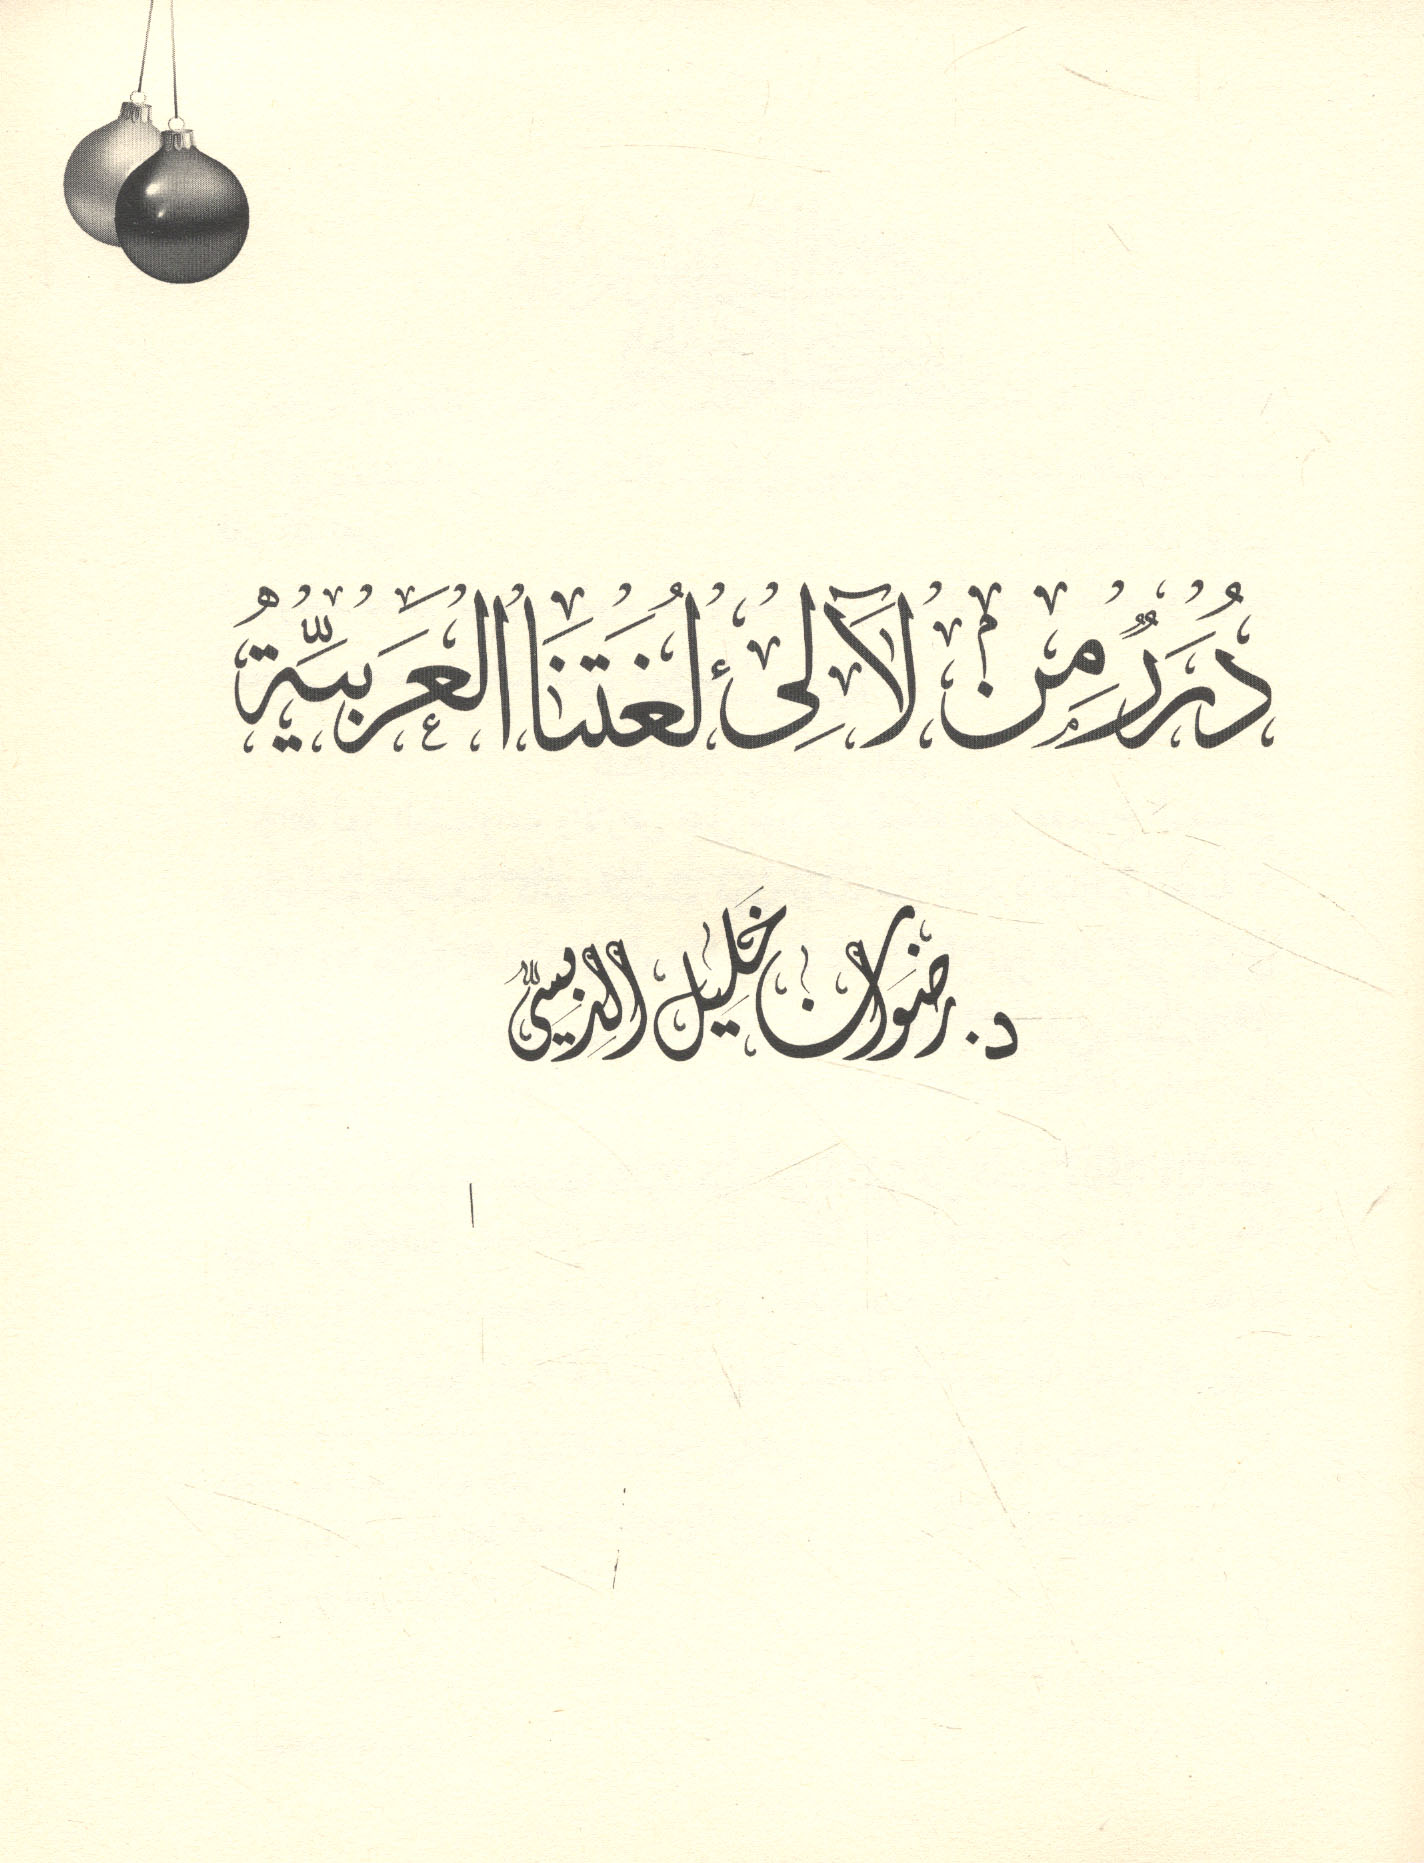 دُرَرٌ مِنْ لَآلِئِ لُغَتِنَا العَرَبِيَّةِ
د. رضوان خليل الدبسي